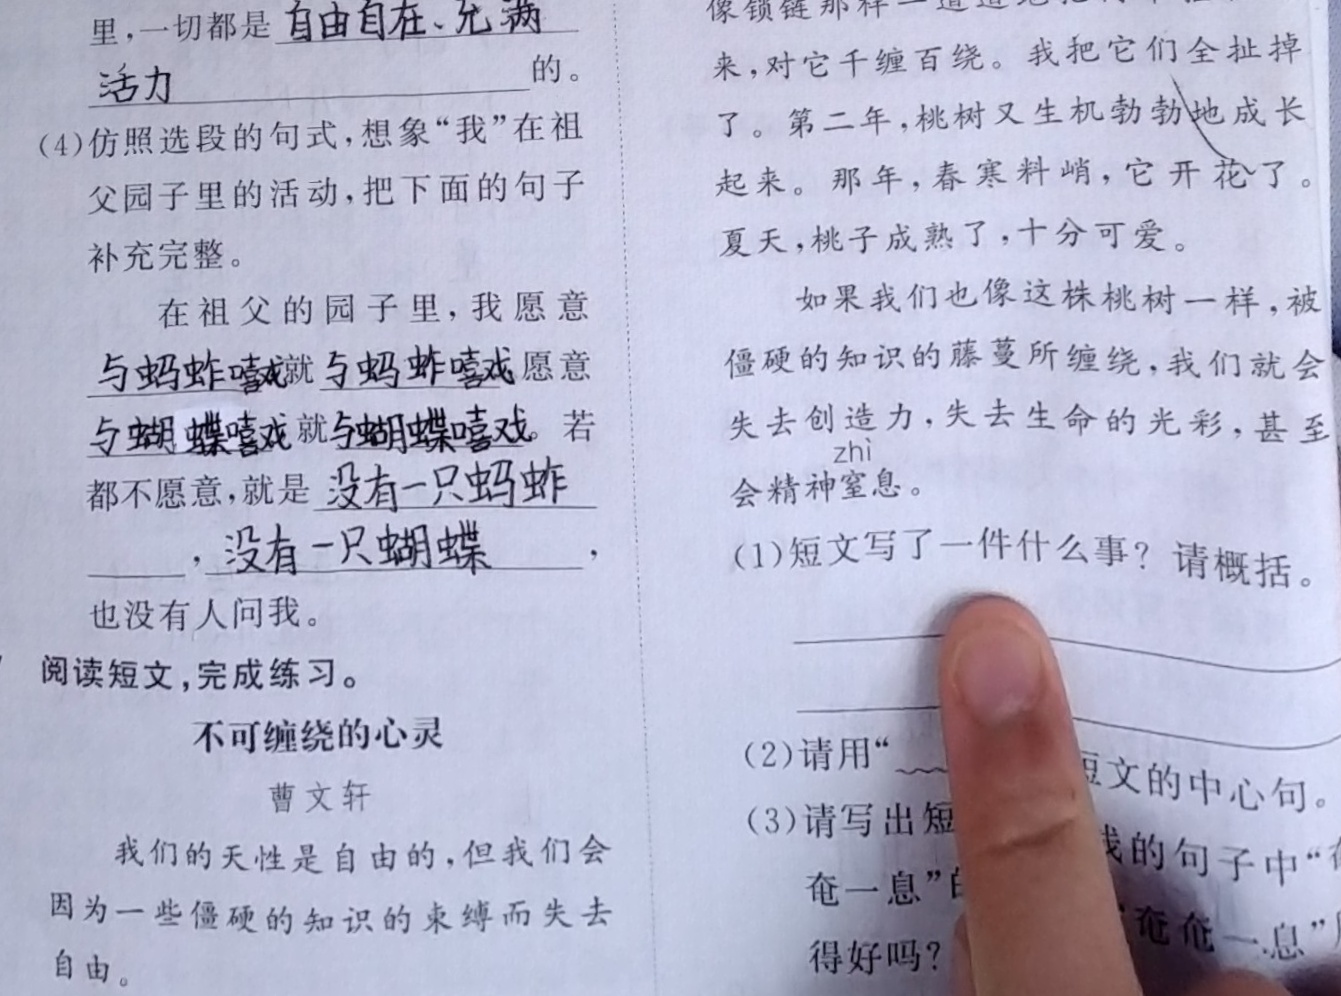 里,一切都是自由自在、充满
活力的。
(4)仿照选段的句式,想象“我”在祖
父园子里的活动,把下面的句子
补充完整。
在祖父的园子里,我愿意
与蚂蚱嘻戏就与蚂蚱嘻戏愿意
与蝴蝶嘻戏就与蝴蝶嘻戏。若
都不愿意,就是没有一只蚂蚱
,没有一只蝴蝶,
也没有人问我。
阅读短文,完成练习。
不可缠绕的心灵
曹文轩
我们的天性是自由的,但我们会
因为一些僵硬的知识的束缚而失去
自由。
像锁链那样一道道地把
来,对它千缠百绕。我把它们全扯掉
了。第二年,桃树又生机勃勃地成长
起来。那年,春寒料峭,它开花了。
夏天,桃子成熟了,十分可爱。
如果我们也像这株桃树一样,被
僵硬的知识的藤蔓所缠绕,我们就会
失去创造力,失去生命的光彩,甚至
zhì
会精神窒息。
(1)短文写了一件什么事?请概括。
(2)请用“ 短文的中心句。
(3)请写出短 线的句子中“
奄一息”的 “奄奄一息”
得好吗?